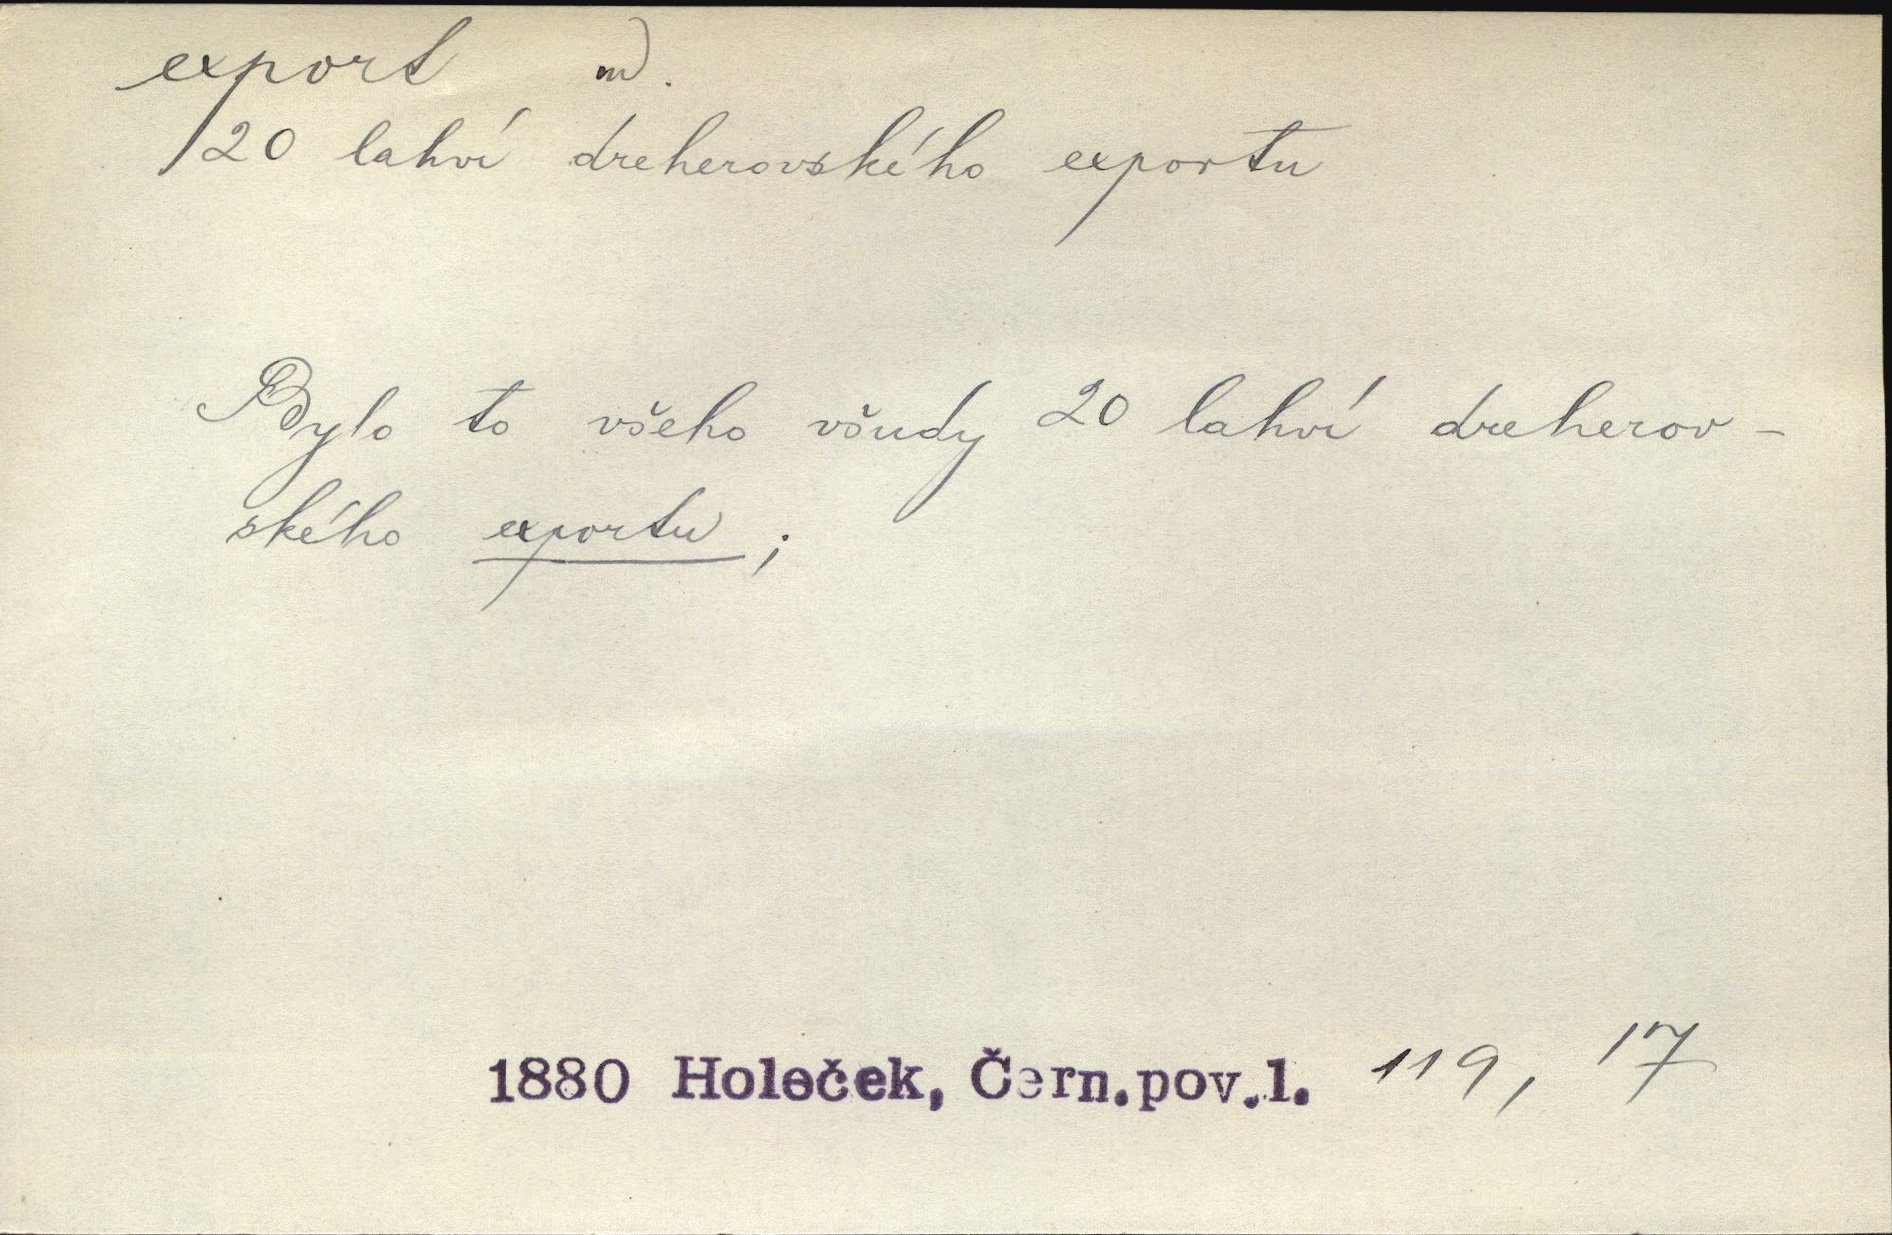 export m.
20 lahví dreherovského exportu
Bylo to všeho všudy 20 lahví dreherov-
ského exportu;
1880 Holeček, Čern.pov.1. 119, 17